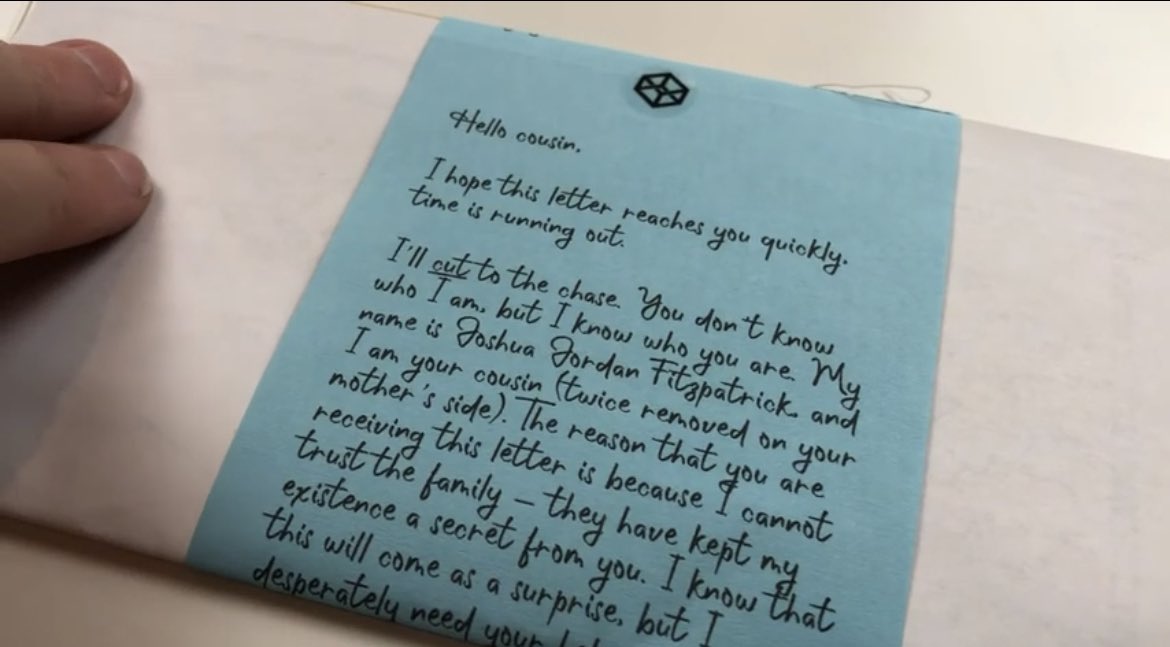 Hello cousin,
I hope this letter reaches you quickly.
time is running out.
I'll cut to the chase. You don't know
who I am, but I know who you are. My
name is Joshua Jordan Fitzpatrick, and
I am your cousin (twice removed on your
mother's side). The reason that you are
receiving this letter is because I cannot
trust the family – they have kept my
existence a secret from you. I know that
this will come as a surprise, but I
desperately need your